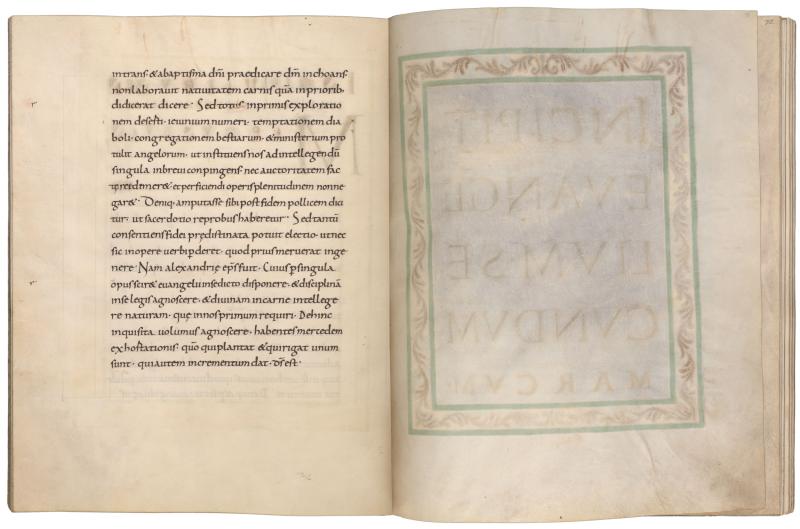 intrans & abaptisma dñi praedicare dm̄ inchoans
non laborauit natiuitatem carnis quā in priorib;
didicerat dicere · Sed totus inprimis exploratio
nem deserti · ieiunium numeri · temptationem dia
boli · congregationem bestiarum · & ministerium pro
tulit angelorum · ut instituens nos ad intellegendū
singula in breui conpingens nec auctoritatem fac
tę rei demer& · et perficiendi operis plenitudinem non ne
gar& · Deniq; amputasse sibi post fidem pollicem dici
tur · ut sacerdotio reprobus haberetur · Sed tantū
consentiens fidei prędistinata potuit electio · ut nec
sic in opere uerbi p̱deret · quod prius meruerat in ge
nere · Nam alexandrię ep̄s fuit · Cuius p̱ singula
opus scire & euangelii in se dicto disponere · & disciplinā
in se legis agnoscere · & diuinam in carne intellege
re naturam · quę in nos primum requiri · Dehinc
inquisita uolumus agnoscere · habentes mercedem
exhortationis · quō qui plantat & qui rigat unum
sunt · qui autem incrementum dat · ds̄ est ·
INCIPIT
EVANGE
LIVM SE
CVNDVM
MARCVM